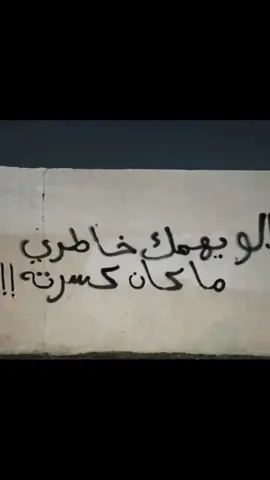 !!لو يهمك خاطري
ما كان كسرته !!